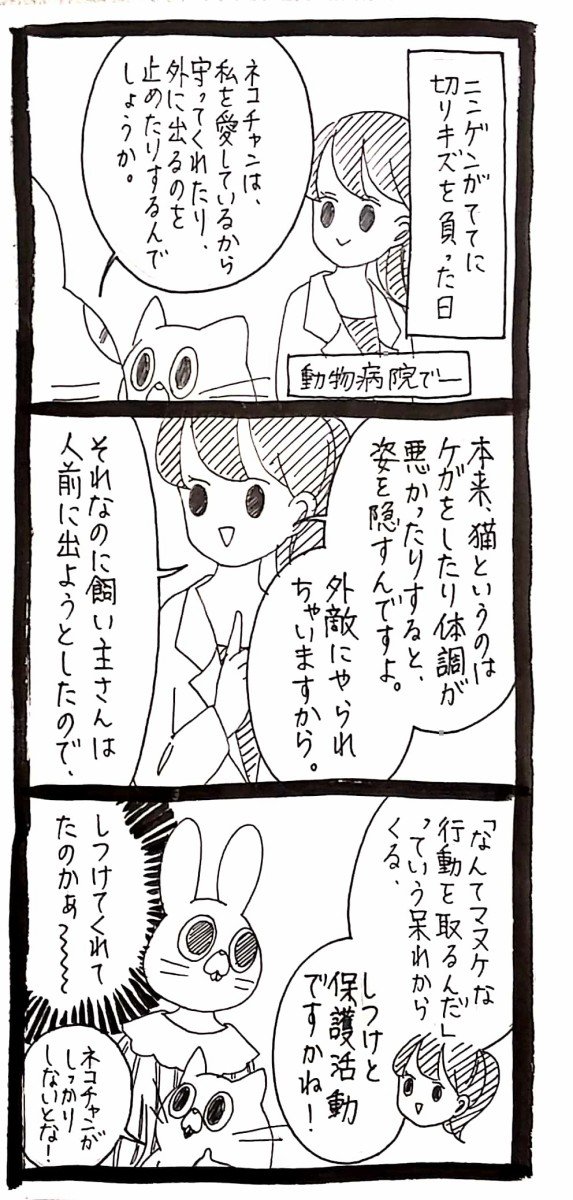 ニンゲンがててに
切りキズを負った日
ネコチャンは、
私を愛しているから
守ってくれたり、
外に出るのを
止めたりするんで
しょうか。
動物病院でー
本来、猫というのは
ケガをしたり体調が
悪かったりすると、
姿を隠すんですよ。
外敵にやられ
ちゃいますから。
それなのに飼い主さんは
人前に出ようとしたので、
「なんてマヌケな
行動を取るんだ」
っていう呆れから
くる、
しつけと
保護活動
ですかね!
しつけてくれて
たのかぁ〜〜〜
ネコチャンが
しっかり
しないとな!